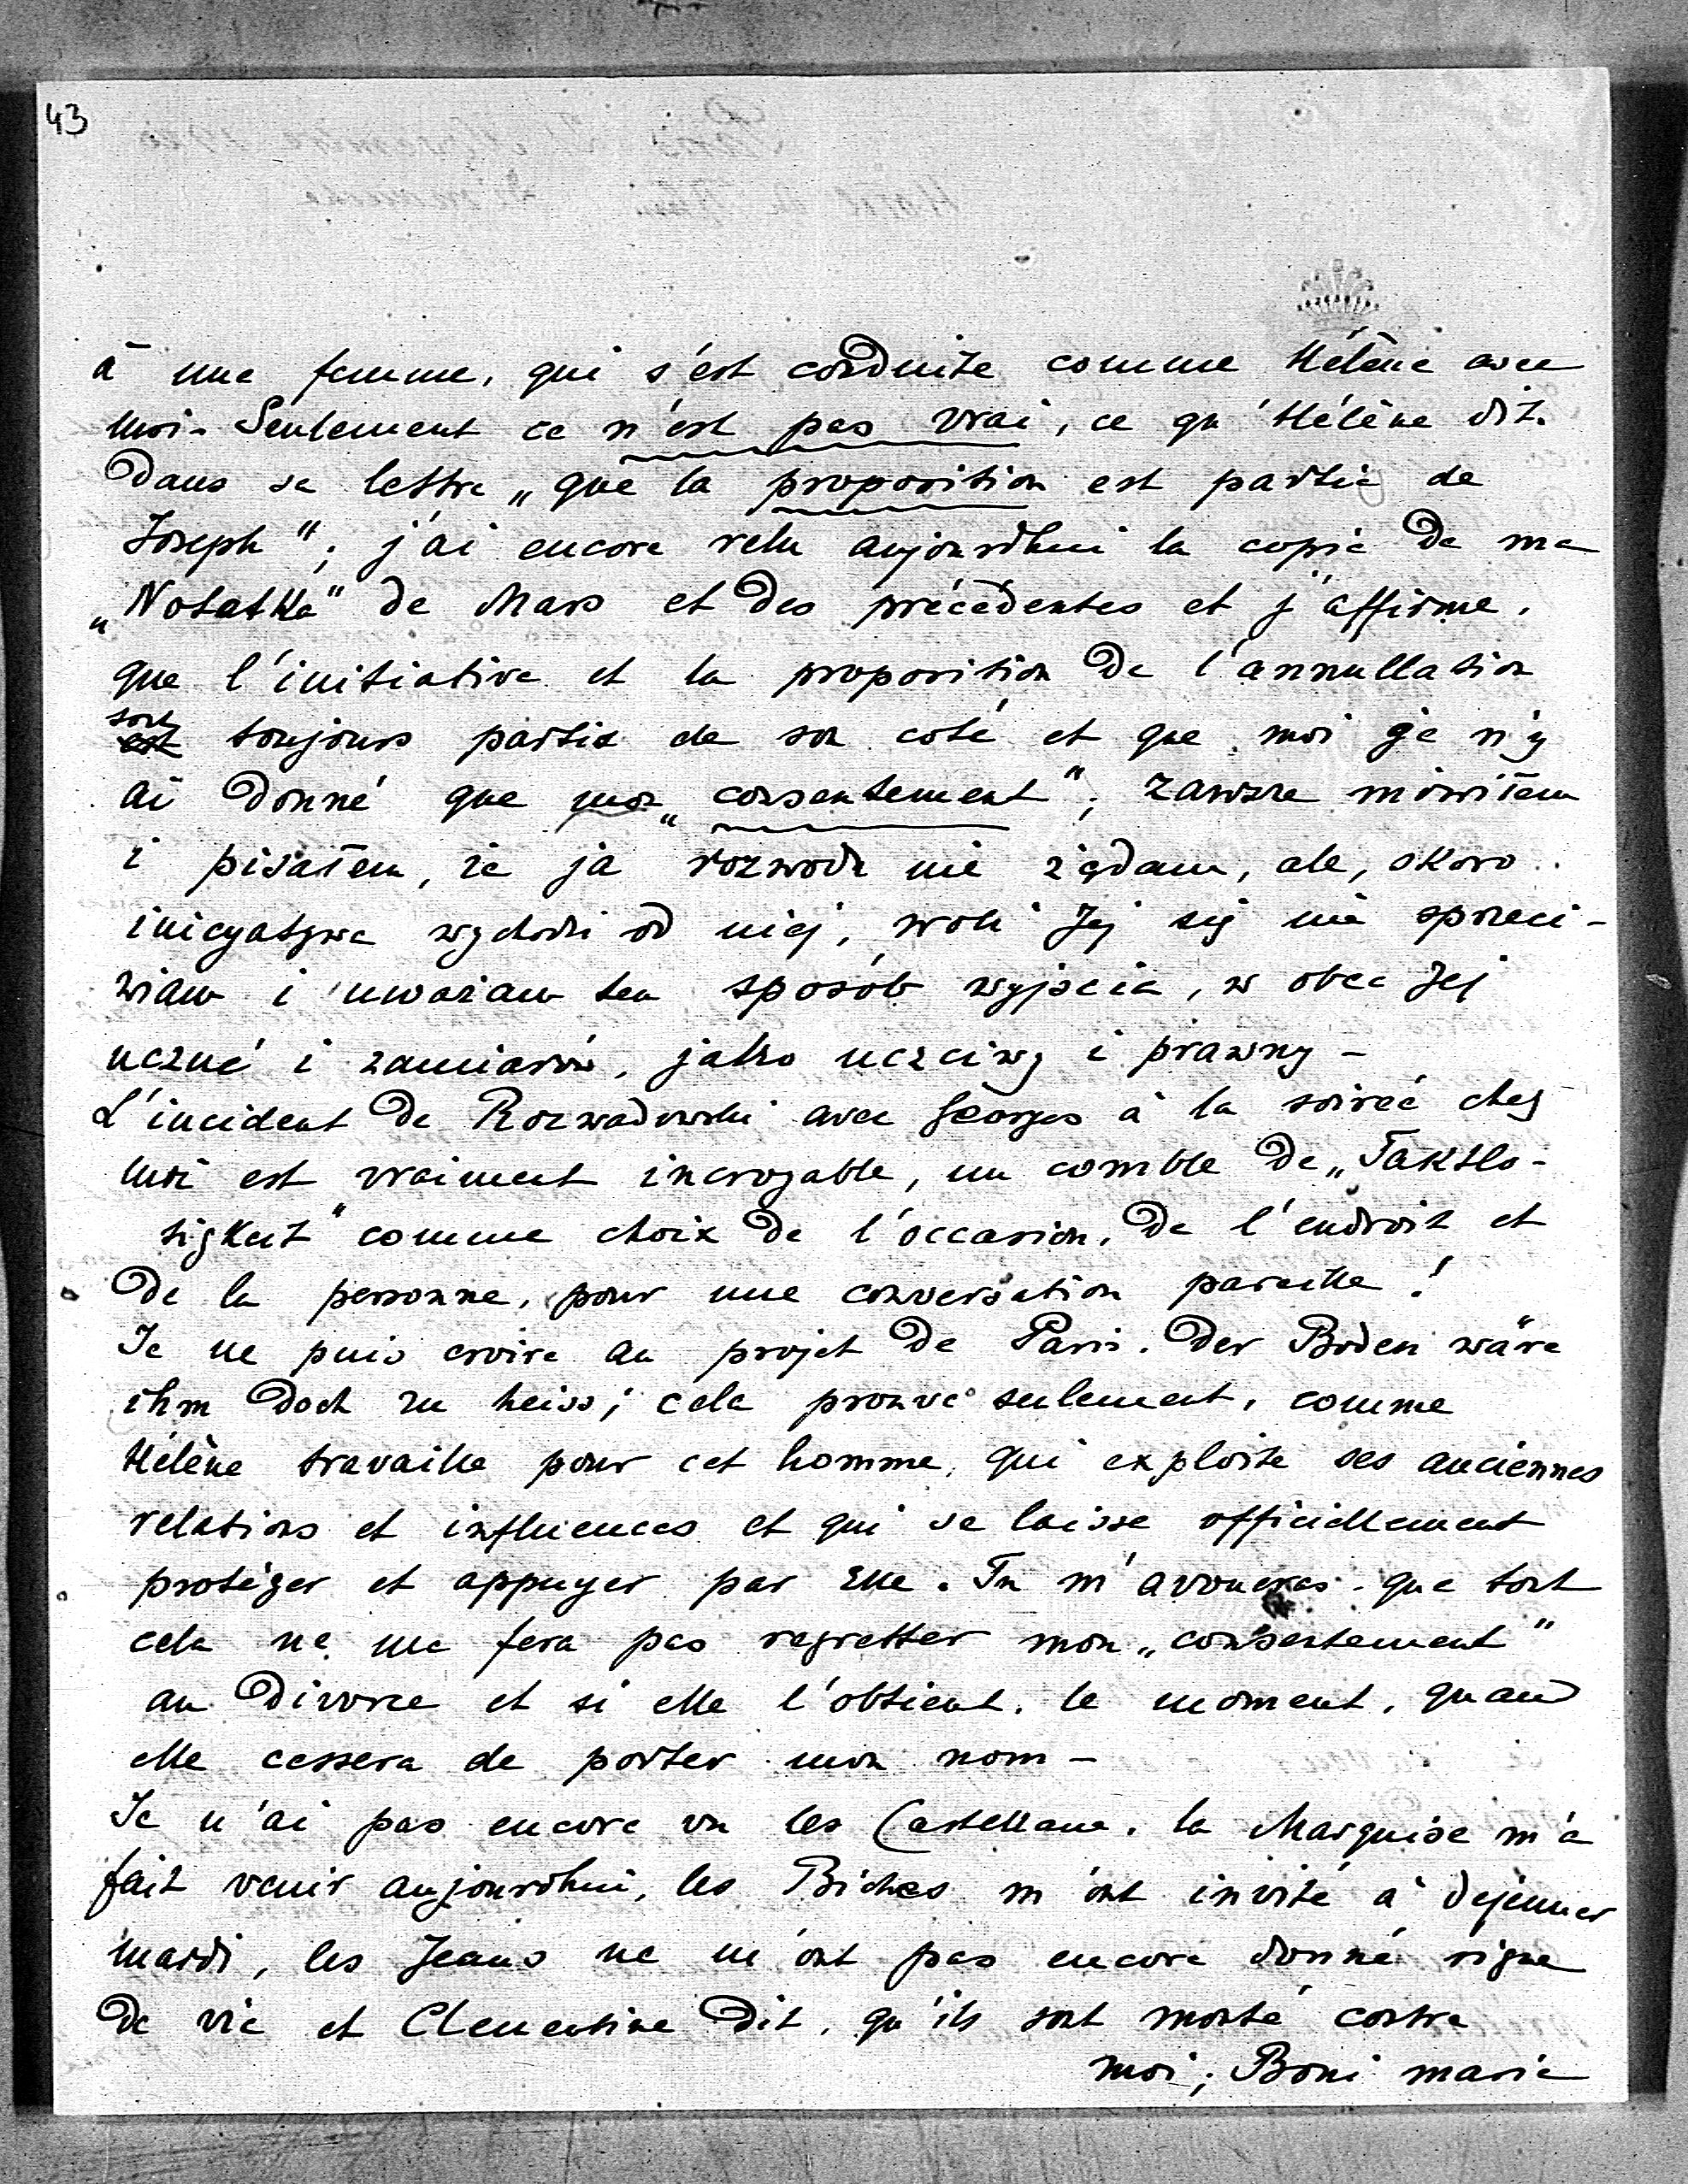 43
à une femme, qui s'est conduite comme Hélène avec
moi - Seulement ce n'est pas vrai, ce qu'Hélène dit
dans sa lettre „que la proposition est partie de
Joseph"; j'ai encore relu aujourdhui la copie de ma
„Notatka" de Mars et des précédentes et j'affirme,
que l'initiative et la proposition de l'annullation
sont toujours parties de son coté et que moi je n'y
ai donné que mon „consentement"; zawsze mówiłem
i pisałem, że ja rozwodu nie żądam, ale, skoro
inicyatywa wychodzi od niej, woli Jej się nie sprzeci-
wiam i uważam ten sposób wyjścia, w obec Jej
uczuć i zamiarów, jako uczciwy i prawny -
L'incident de Rozwadowski avec Georges à la soirée chez
moi est vraiment incroyable, un comble de „Taktlo-
sigkeit" comme choix de l'occasion, de l'endroit et
de la personne, pour une conversation pareille!
Je ne puis croire au projet de Paris. Der Boden wäre
ihm doch zu heiss; cela prouve seulement, comme
Hélène travaille pour cet homme, qui exploite ses anciennes
relations et influences et qui se laisse officiellement
protéger et appuyer par Elle. Tu m'avoueras que tout
cela ne me fera pas regretter mon „consentement"
au Divorce et si elle l'obtient, le moment, quand
elle cessera de porter mon nom -
Je n'ai pas encore vu les Castellane, la Marquise m'a
fait venir aujourdhui, les Biches m'ont invité à dejeuner
mardi, les Jeans ne m'ont pas encore donné signe
de vie et Clementine dit, qu'ils sont monté contre
moi; Boni marie